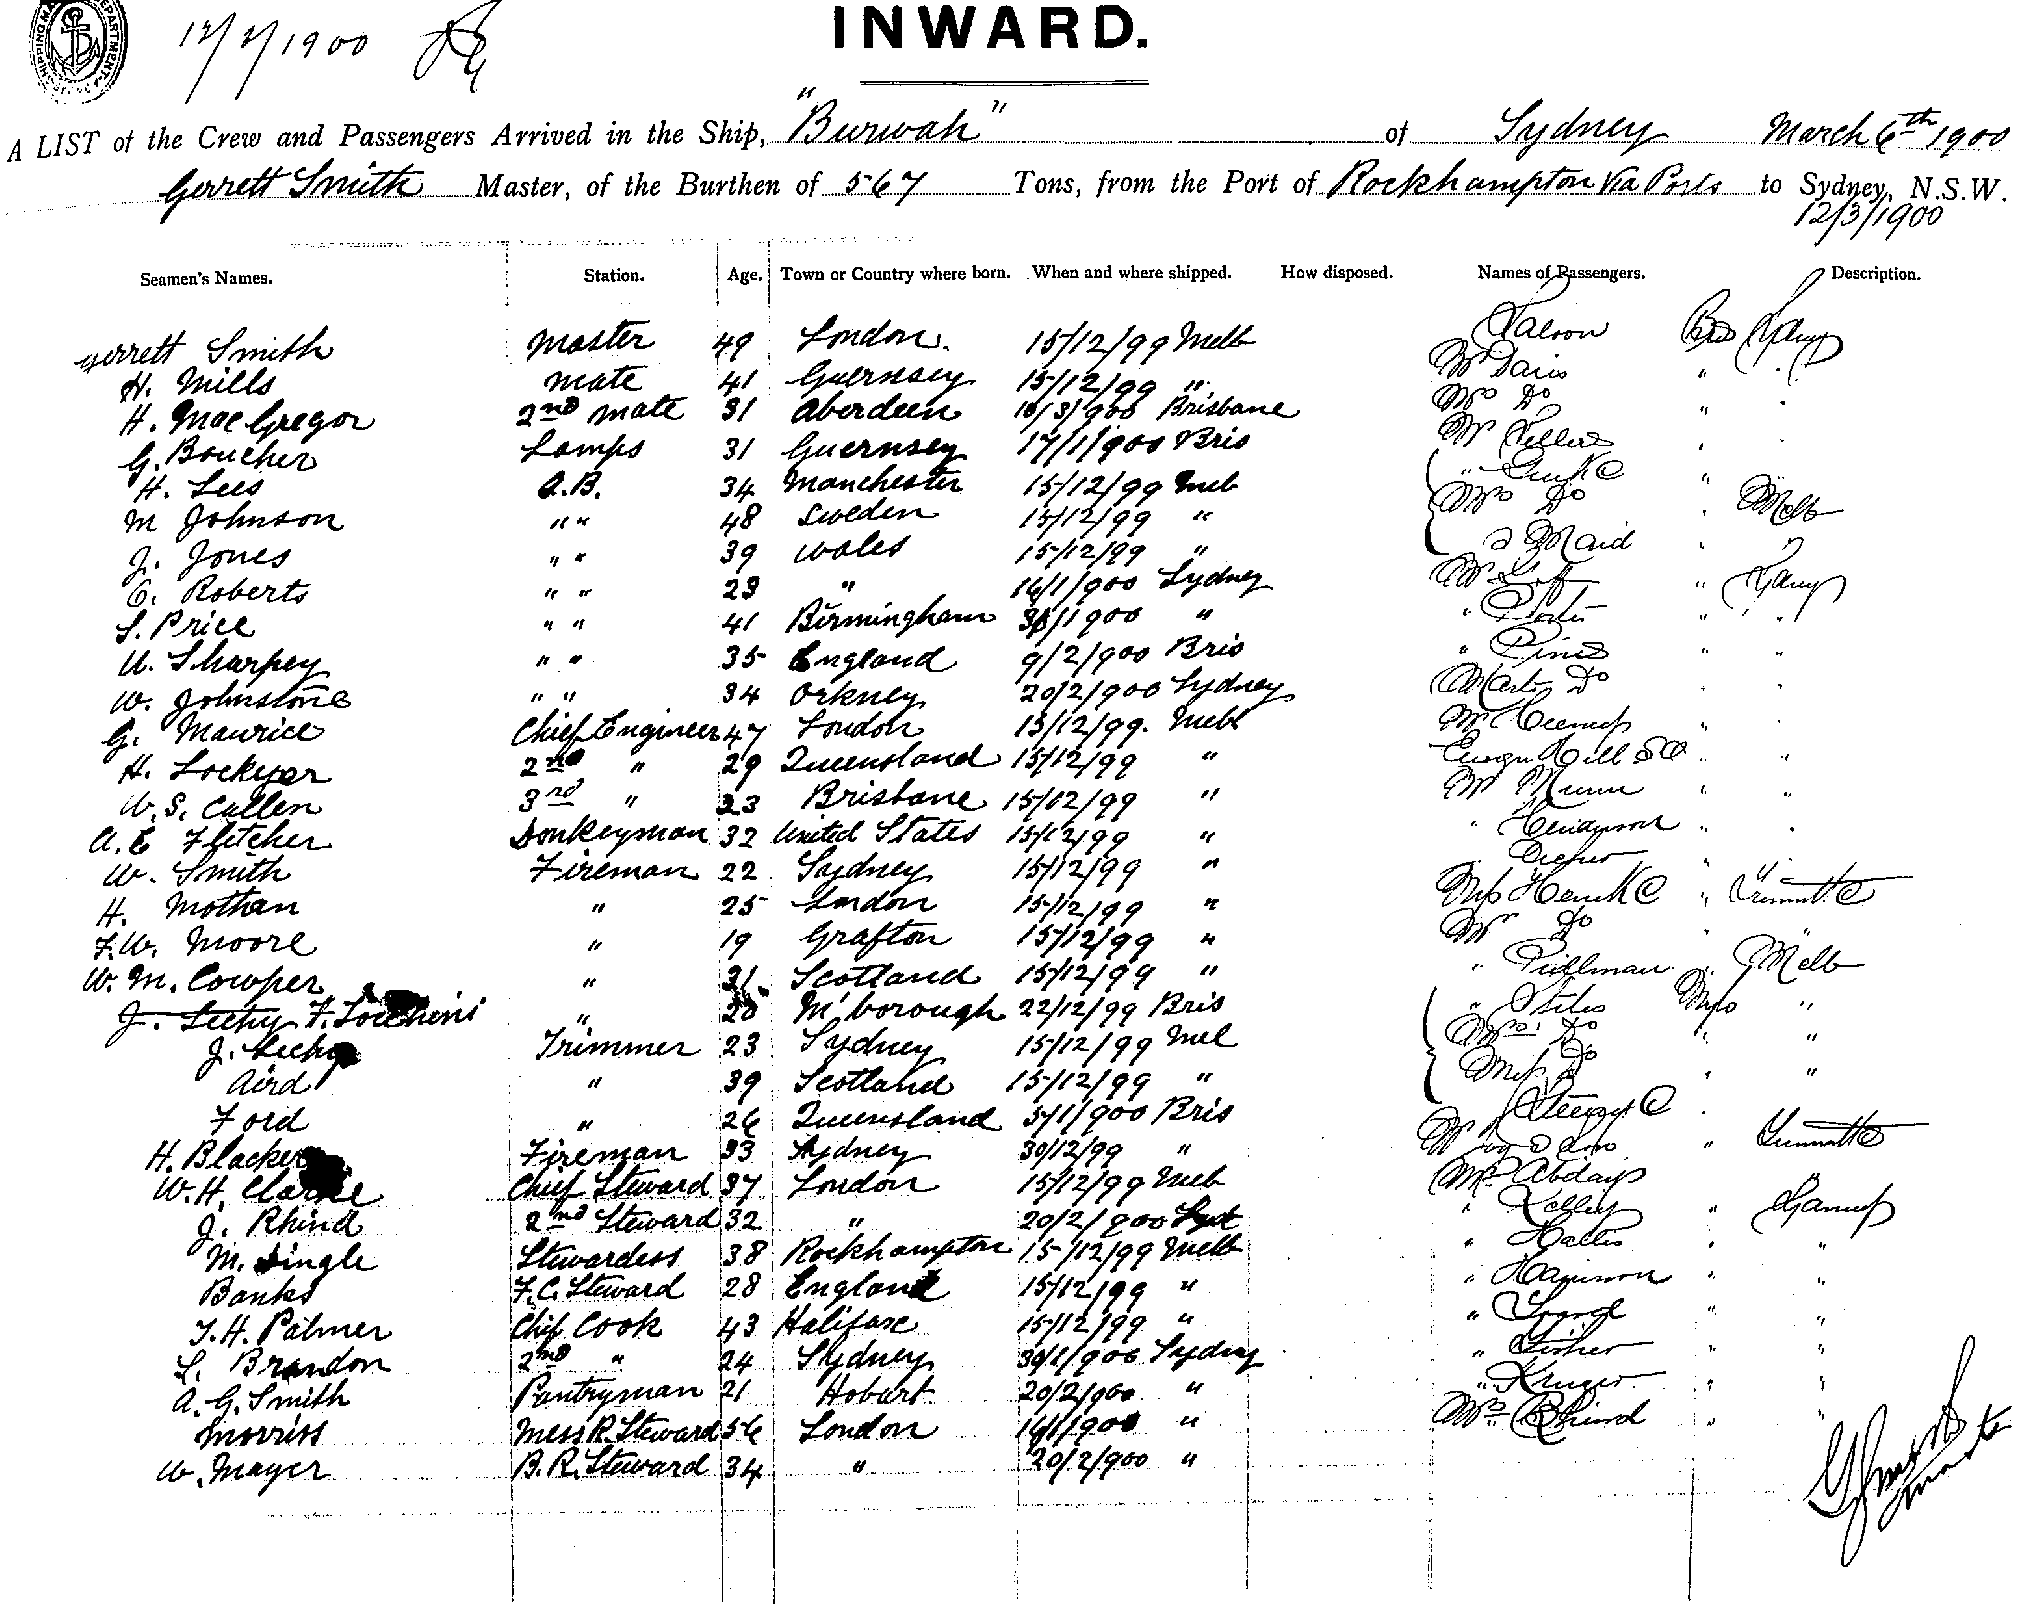 12/3/1900
INWARD.
A LIST of the Crew and Passengers Arrived in the Ship, "Burwah" of Sydney March 6th 1900
Gerrett Smith Master, of the Burthen of 567 Tons, from the Port of Rockhampton Via Ports to Sydney, N.S.W.
12/3/1900
Seamen's Names. Station. Age. Town or Country where born. When and where shipped. How disposed. Names of Passengers. Description.
Gerrett Smith Master 49 London. 15/12/99 Melb Saloon
H. Mills Mate 41 Guernsey 15/12/99 " Mr Davis "
H. MacGregor 2nd Mate 31 Aberdeen /3/900 Brisbane Mrs Do "
G. Boucher Lamps 31 Guernsey 17/1/900 Bris Mr "
H. Lees A.B. 34 Manchester 15/12/99 Melb " "
M Johnson " " 48 Sweden 15/12/99 " Mrs Do " Melb
J. Jones " " 39 Wales 15/12/99 " & Maid "
E. Roberts " " 23 " 16/1/900 Sydney Mr "
S. Price " " 41 Birmingham 30/1/900 " " Porter " "
W. Sharpey " " 35 England 9/2/900 Bris " " "
W. Johnstone " " 34 Orkney 20/2/900 Sydney Mastr Do " "
G. Maurice Chief Engineer 47 London 15/12/99. Melb Mr "
H. Lockyer 2nd " 29 Queensland 15/12/99 " Hill " "
W. S. Cullen 3rd " 23 Brisbane 15/12/99 " Mr Munn " "
A. E Fletcher Donkeyman 32 United States 15/12/99 " " Henderson " "
W. Smith Fireman 22 Sydney 15/12/99 " "
H. Mothan " 25 London 15/12/99 " "
F. W. Moore " 19 Grafton 15/12/99 " Mr Do "
W. M. Cowper " 31 Scotland 15/12/99 " " " Melb
J. Lechy F. " 20 M'borough 22/12/99 Bris " Stiles "
J. Lechy Trimmer 23 Sydney 15/12/99 Mel Mrs Do " "
Aird " 39 Scotland 15/12/99 " Miss Do " "
Ford " 26 Queensland 5/1/900 Bris
H. Blacker Fireman 33 Sydney 30/12/99 " Mr "
W. H. Clarke Chief Steward 37 London 15/12/99 Melb Mr
J. Rhind 2nd Steward 32 " 20/2/900 Syd " Kelley "
M. Single Stewardess 38 Rockhampton 15/12/99 Melb " " "
Banks F.C. Steward 28 England 15/12/99 " " Harrison " "
T. H. Palmer Chief Cook 43 Halifax 15/12/99 " " " "
L. Brandon 2nd " 24 Sydney 30/1/900 Sydney " Fisher " "
A. G. Smith Pantryman 21 Hobart 20/2/900 " " Kruger " "
Morriss Mess R. Steward 56 London 16/1/900 " Mrs Rhind " "
W. Mayer B. R. Steward 34 " 20/2/900 "